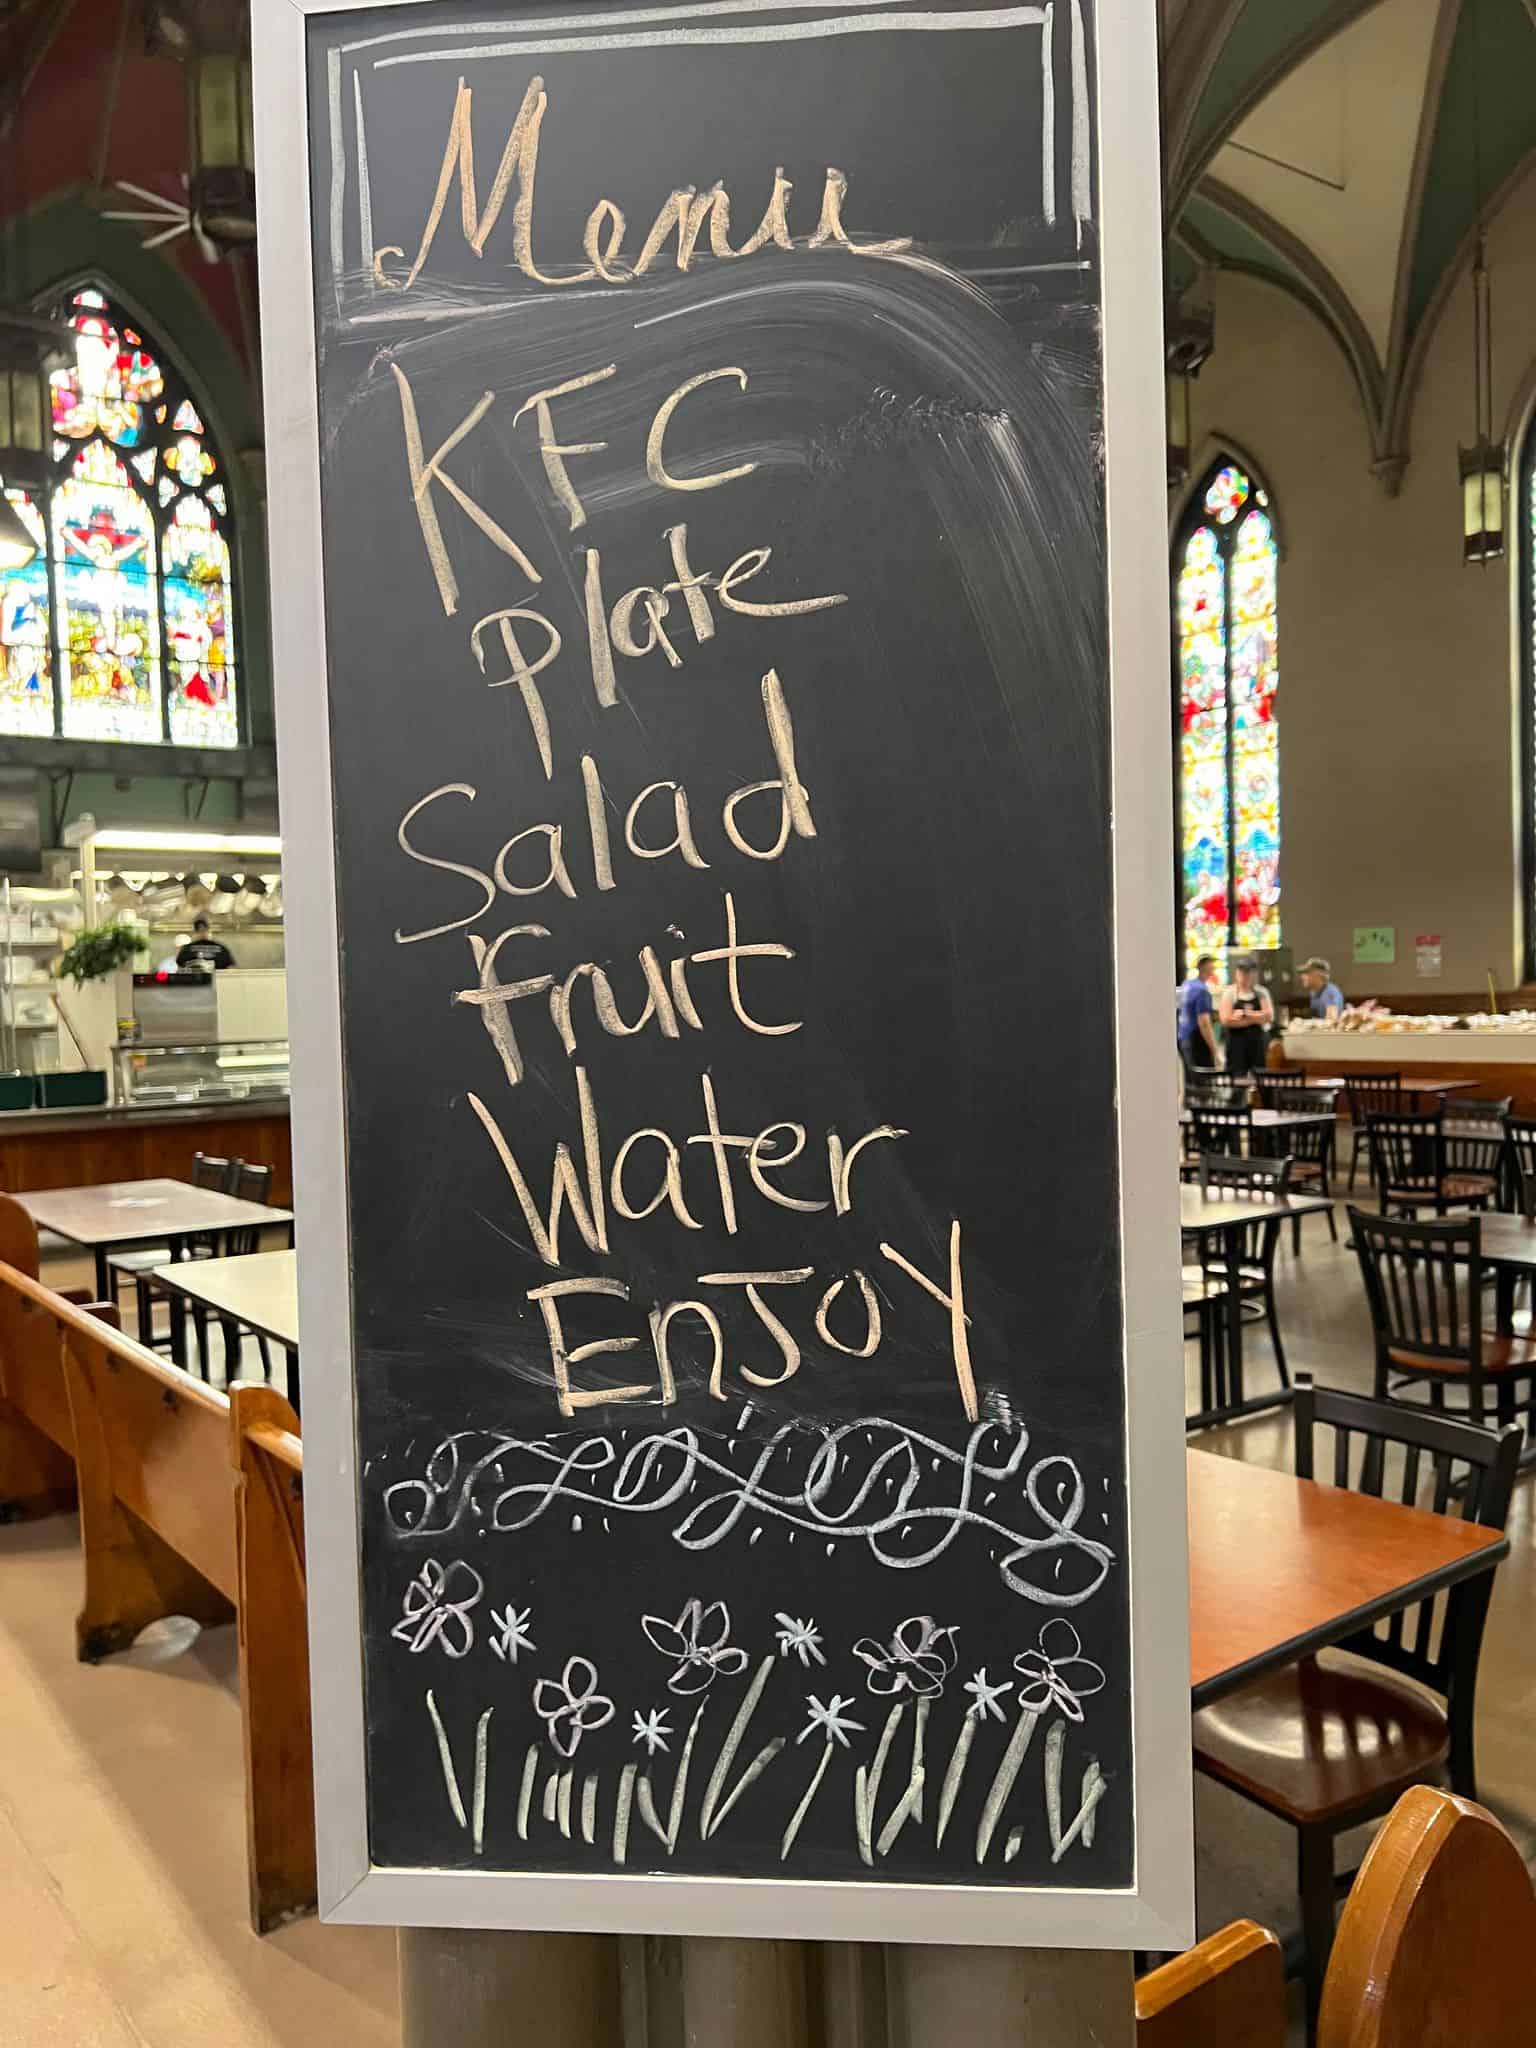 Menu
KFC
Plate
Salad
Fruit
Water
EnJoY